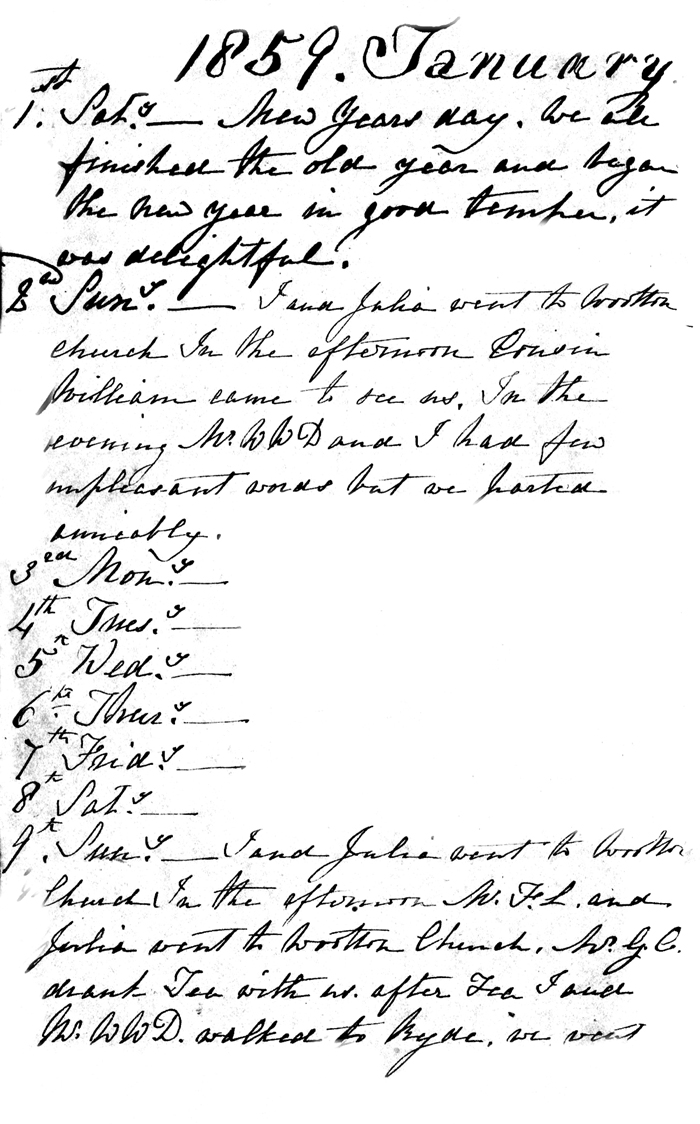 1859. January
1st. Sat.y — New Years day. We all
finished the old year and began
the new year in good temper, it
was delightful.
2nd Sun.y. — I and Julia went to Wootton
church In the afternoon Cousin
William came to see us. In the
evening Mr. W W D and I had few
unpleasant words but we parted
amicably.
3rd Mon.y —
4th Tues.y —
5th Wed.y —
6th Thur.y —
7th Frid.y —
8th Sat.y —
9th. Sun.y. — I and Julia went to Wootton
Church In the afternoon Mr. F. L. and
Julia went to Wootton Church. Mr. G. C.
drank Tea with us. after Tea I and
Mr. W W D. walked to Ryde, we went